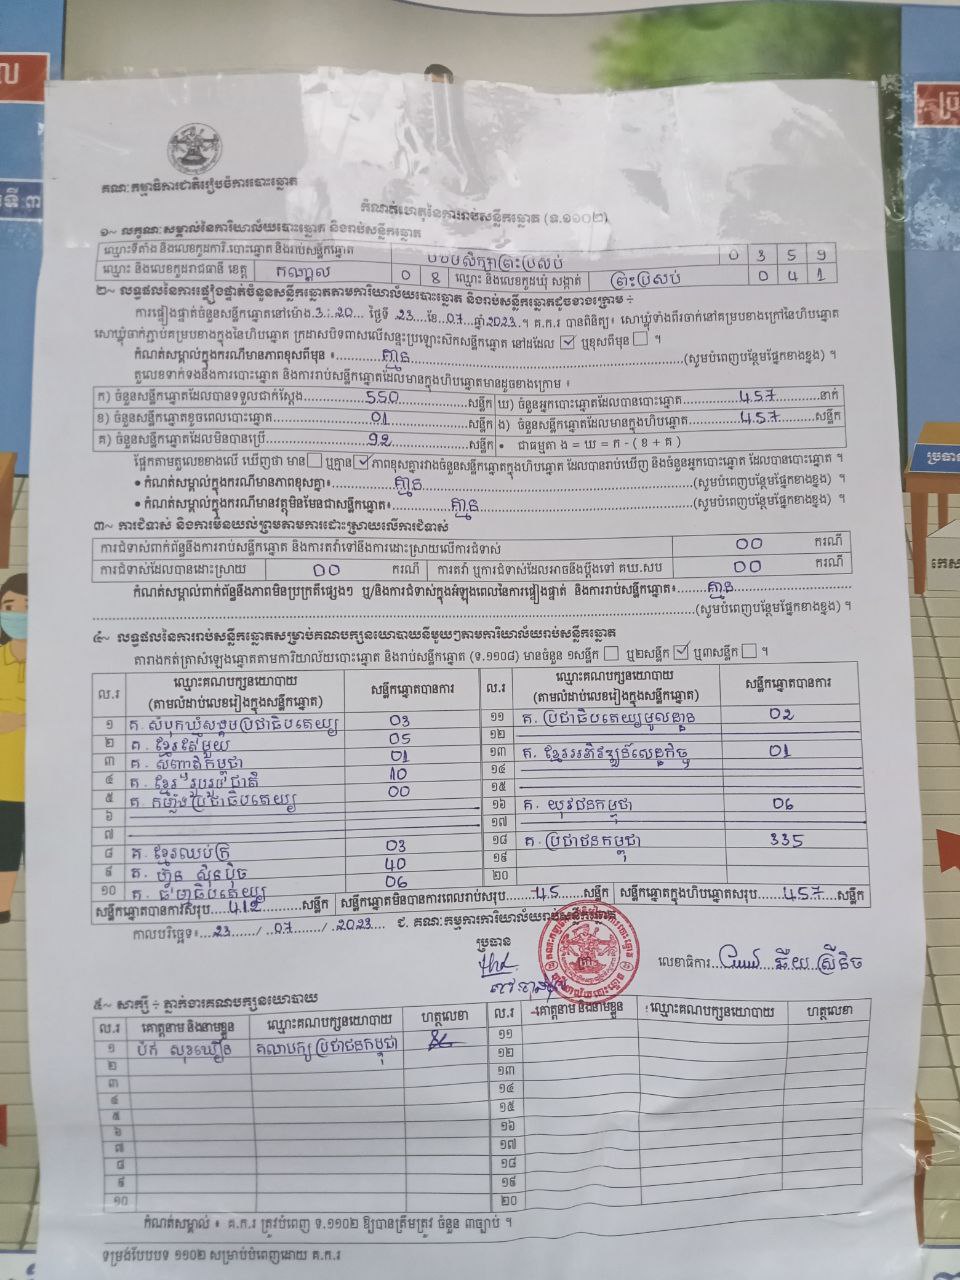 គណៈកម្មាធិការជាតិរៀបចំការបោះឆ្នោត
កំណត់ហេតុនៃការរាប់សន្លឹកឆ្នោត (ទ.១១០២)
១~ លក្ខណៈសម្គាល់នៃការិយាល័យបោះឆ្នោត និងរាប់សន្លឹកឆ្នោត
ឈ្មោះទីតាំង និងលេខកូដការិ.បោះឆ្នោត និងរាប់សន្លឹកឆ្នោត បឋមសិក្សាព្រះប្រសប់ 0 3 5 9
ឈ្មោះ និងលេខកូដរាជធានី ខេត្ត កណ្តាល 0 8 ឈ្មោះ និងលេខកូដឃុំ សង្កាត់ ព្រះប្រសប់ 0 4 1
២~ លទ្ធផលនៃការផ្ទៀងផ្ទាត់ចំនួនសន្លឹកឆ្នោតតាមការិយាល័យបោះឆ្នោត និងរាប់សន្លឹកឆ្នោតដូចខាងក្រោម ÷
ការផ្ទៀងផ្ទាត់ចំនួនសន្លឹកឆ្នោតនៅម៉ោង 3:20 ថ្ងៃទី 23 ខែ 07 ឆ្នាំ 2023 ។ គ.ក.រ បានពិនិត្យ៖ សោឃ្លុំទាំងពីរចាក់នៅគម្របខាងក្រៅនៃហិបឆ្នោត
សោឃ្លុំចាក់ភ្ជាប់គម្របខាងក្នុងនៃហិបឆ្នោត ក្រដាសបិទពាសលើសន្ទះប្រឡោះស៊កសន្លឹកឆ្នោត នៅដដែល ☑ ឬខុសពីមុន ☐ ។
កំណត់សម្គាល់ក្នុងករណីមានភាពខុសពីមុន ៖ គ្មាន (សូមបំពេញបន្ថែមផ្នែកខាងខ្នង) ។
តួលេខទាក់ទងនឹងការបោះឆ្នោត និងការរាប់សន្លឹកឆ្នោតដែលមានក្នុងហិបឆ្នោតមានដូចខាងក្រោម ៖
ក) ចំនួនសន្លឹកឆ្នោតដែលបានទទួលជាក់ស្តែង 550 សន្លឹក ឃ) ចំនួនអ្នកបោះឆ្នោតដែលបានបោះឆ្នោត 457 នាក់
ខ) ចំនួនសន្លឹកឆ្នោតខូចពេលបោះឆ្នោត 01 សន្លឹក ង) ចំនួនសន្លឹកឆ្នោតដែលមានក្នុងហិបឆ្នោត 457 សន្លឹក
គ) ចំនួនសន្លឹកឆ្នោតដែលមិនបានប្រើ 92 សន្លឹក • ជាធម្មតា ង = ឃ = ក - ( ខ + គ )
ផ្អែកតាមតួលេខខាងលើ ឃើញថា មាន ☐ ឬគ្មាន ☑ ភាពខុសគ្នារវាងចំនួនសន្លឹកឆ្នោតក្នុងហិបឆ្នោត ដែលបានរាប់ឃើញ និងចំនួនអ្នកបោះឆ្នោត ដែលបានបោះឆ្នោត ។
• កំណត់សម្គាល់ក្នុងករណីមានភាពខុសគ្នា៖ គ្មាន (សូមបំពេញបន្ថែមផ្នែកខាងខ្នង) ។
• កំណត់សម្គាល់ក្នុងករណីមានវត្ថុមិនមែនជាសន្លឹកឆ្នោត៖ គ្មាន (សូមបំពេញបន្ថែមផ្នែកខាងខ្នង) ។
៣~ ការជំទាស់ និងការមិនយល់ព្រមតាមការដោះស្រាយលើការជំទាស់
ការជំទាស់ពាក់ព័ន្ធនឹងការរាប់សន្លឹកឆ្នោត និងការតវ៉ាទៅនឹងការដោះស្រាយលើការជំទាស់ 00 ករណី
ការជំទាស់ដែលបានដោះស្រាយ 00 ករណី ការតវ៉ា ឬការជំទាស់ដែលអាចនឹងប្តឹងទៅ គឃ.សប 00 ករណី
កំណត់សម្គាល់ពាក់ព័ន្ធនឹងភាពមិនប្រក្រតីផ្សេងៗ ឬ/និងការជំទាស់ក្នុងអំឡុងពេលនៃការផ្ទៀងផ្ទាត់ និងការរាប់សន្លឹកឆ្នោត៖ គ្មាន
(សូមបំពេញបន្ថែមផ្នែកខាងខ្នង) ។
៤~ លទ្ធផលនៃការរាប់សន្លឹកឆ្នោតសម្រាប់គណបក្សនយោបាយនីមួយៗតាមការិយាល័យរាប់សន្លឹកឆ្នោត
តារាងកត់ត្រាសំឡេងឆ្នោតតាមការិយាល័យបោះឆ្នោត និងរាប់សន្លឹកឆ្នោត (ទ.១១០៨) មានចំនួន ១សន្លឹក ☐ ឬ២សន្លឹក ☑ ឬ៣សន្លឹក ☐ ។
ល.រ ឈ្មោះគណបក្សនយោបាយ (តាមលំដាប់លេខរៀងក្នុងសន្លឹកឆ្នោត) សន្លឹកឆ្នោតបានការ ល.រ ឈ្មោះគណបក្សនយោបាយ (តាមលំដាប់លេខរៀងក្នុងសន្លឹកឆ្នោត) សន្លឹកឆ្នោតបានការ
១ គ. សំបុកឃ្មុំសង្គមប្រជាធិបតេយ្យ 03 ១១ គ. ប្រជាធិបតេយ្យមូលដ្ឋាន 02
២ គ. ខ្មែរតែមួយ 05 ១២
៣ គ. សញ្ជាតិកម្ពុជា 01 ១៣ គ. ខ្មែរអភិវឌ្ឍន៍សេដ្ឋកិច្ច 01
៤ គ. ខ្មែររួបរួមជាតិ 10 ១៤
៥ គ. កម្លាំងប្រជាធិបតេយ្យ 00 ១៥
៦ ១៦ គ. យុវជនកម្ពុជា 06
៧ ១៧
៨ គ. ខ្មែរឈប់ក្រ 03 ១៨ គ. ប្រជាជនកម្ពុជា 335
៩ គ. ហ៊្វុន ស៊ិនប៉ិច 40 ១៩
១០ គ. ធម្មាធិបតេយ្យ 06 ២០
សន្លឹកឆ្នោតបានការសរុប 412 សន្លឹក សន្លឹកឆ្នោតមិនបានការពេលរាប់សរុប 45 សន្លឹក សន្លឹកឆ្នោតក្នុងហិបឆ្នោតសរុប 457 សន្លឹក
កាលបរិច្ឆេទ៖ 23 / 07 / 2023 ជ. គណៈកម្មការការិយាល័យរាប់សន្លឹកឆ្នោត
ប្រធាន
លេខាធិការ ឆឺយ ស្រីនិច
៥~ សាក្សី ÷ ភ្នាក់ងារគណបក្សនយោបាយ
ល.រ គោត្តនាម និងនាមខ្លួន ឈ្មោះគណបក្សនយោបាយ ហត្ថលេខា ល.រ គោត្តនាម និងនាមខ្លួន ឈ្មោះគណបក្សនយោបាយ ហត្ថលេខា
១ ប៉ក់ សុខឃឿន គណបក្សប្រជាជនកម្ពុជា ១១
២ ១២
៣ ១៣
៤ ១៤
៥ ១៥
៦ ១៦
៧ ១៧
៨ ១៨
៩ ១៩
១០ ២០
កំណត់សម្គាល់ ៖ គ.ក.រ ត្រូវបំពេញ ទ.១១០២ ឱ្យបានត្រឹមត្រូវ ចំនួន ៣ច្បាប់ ។
ទម្រង់បែបបទ ១១០២ សម្រាប់បំពេញដោយ គ.ក.រ